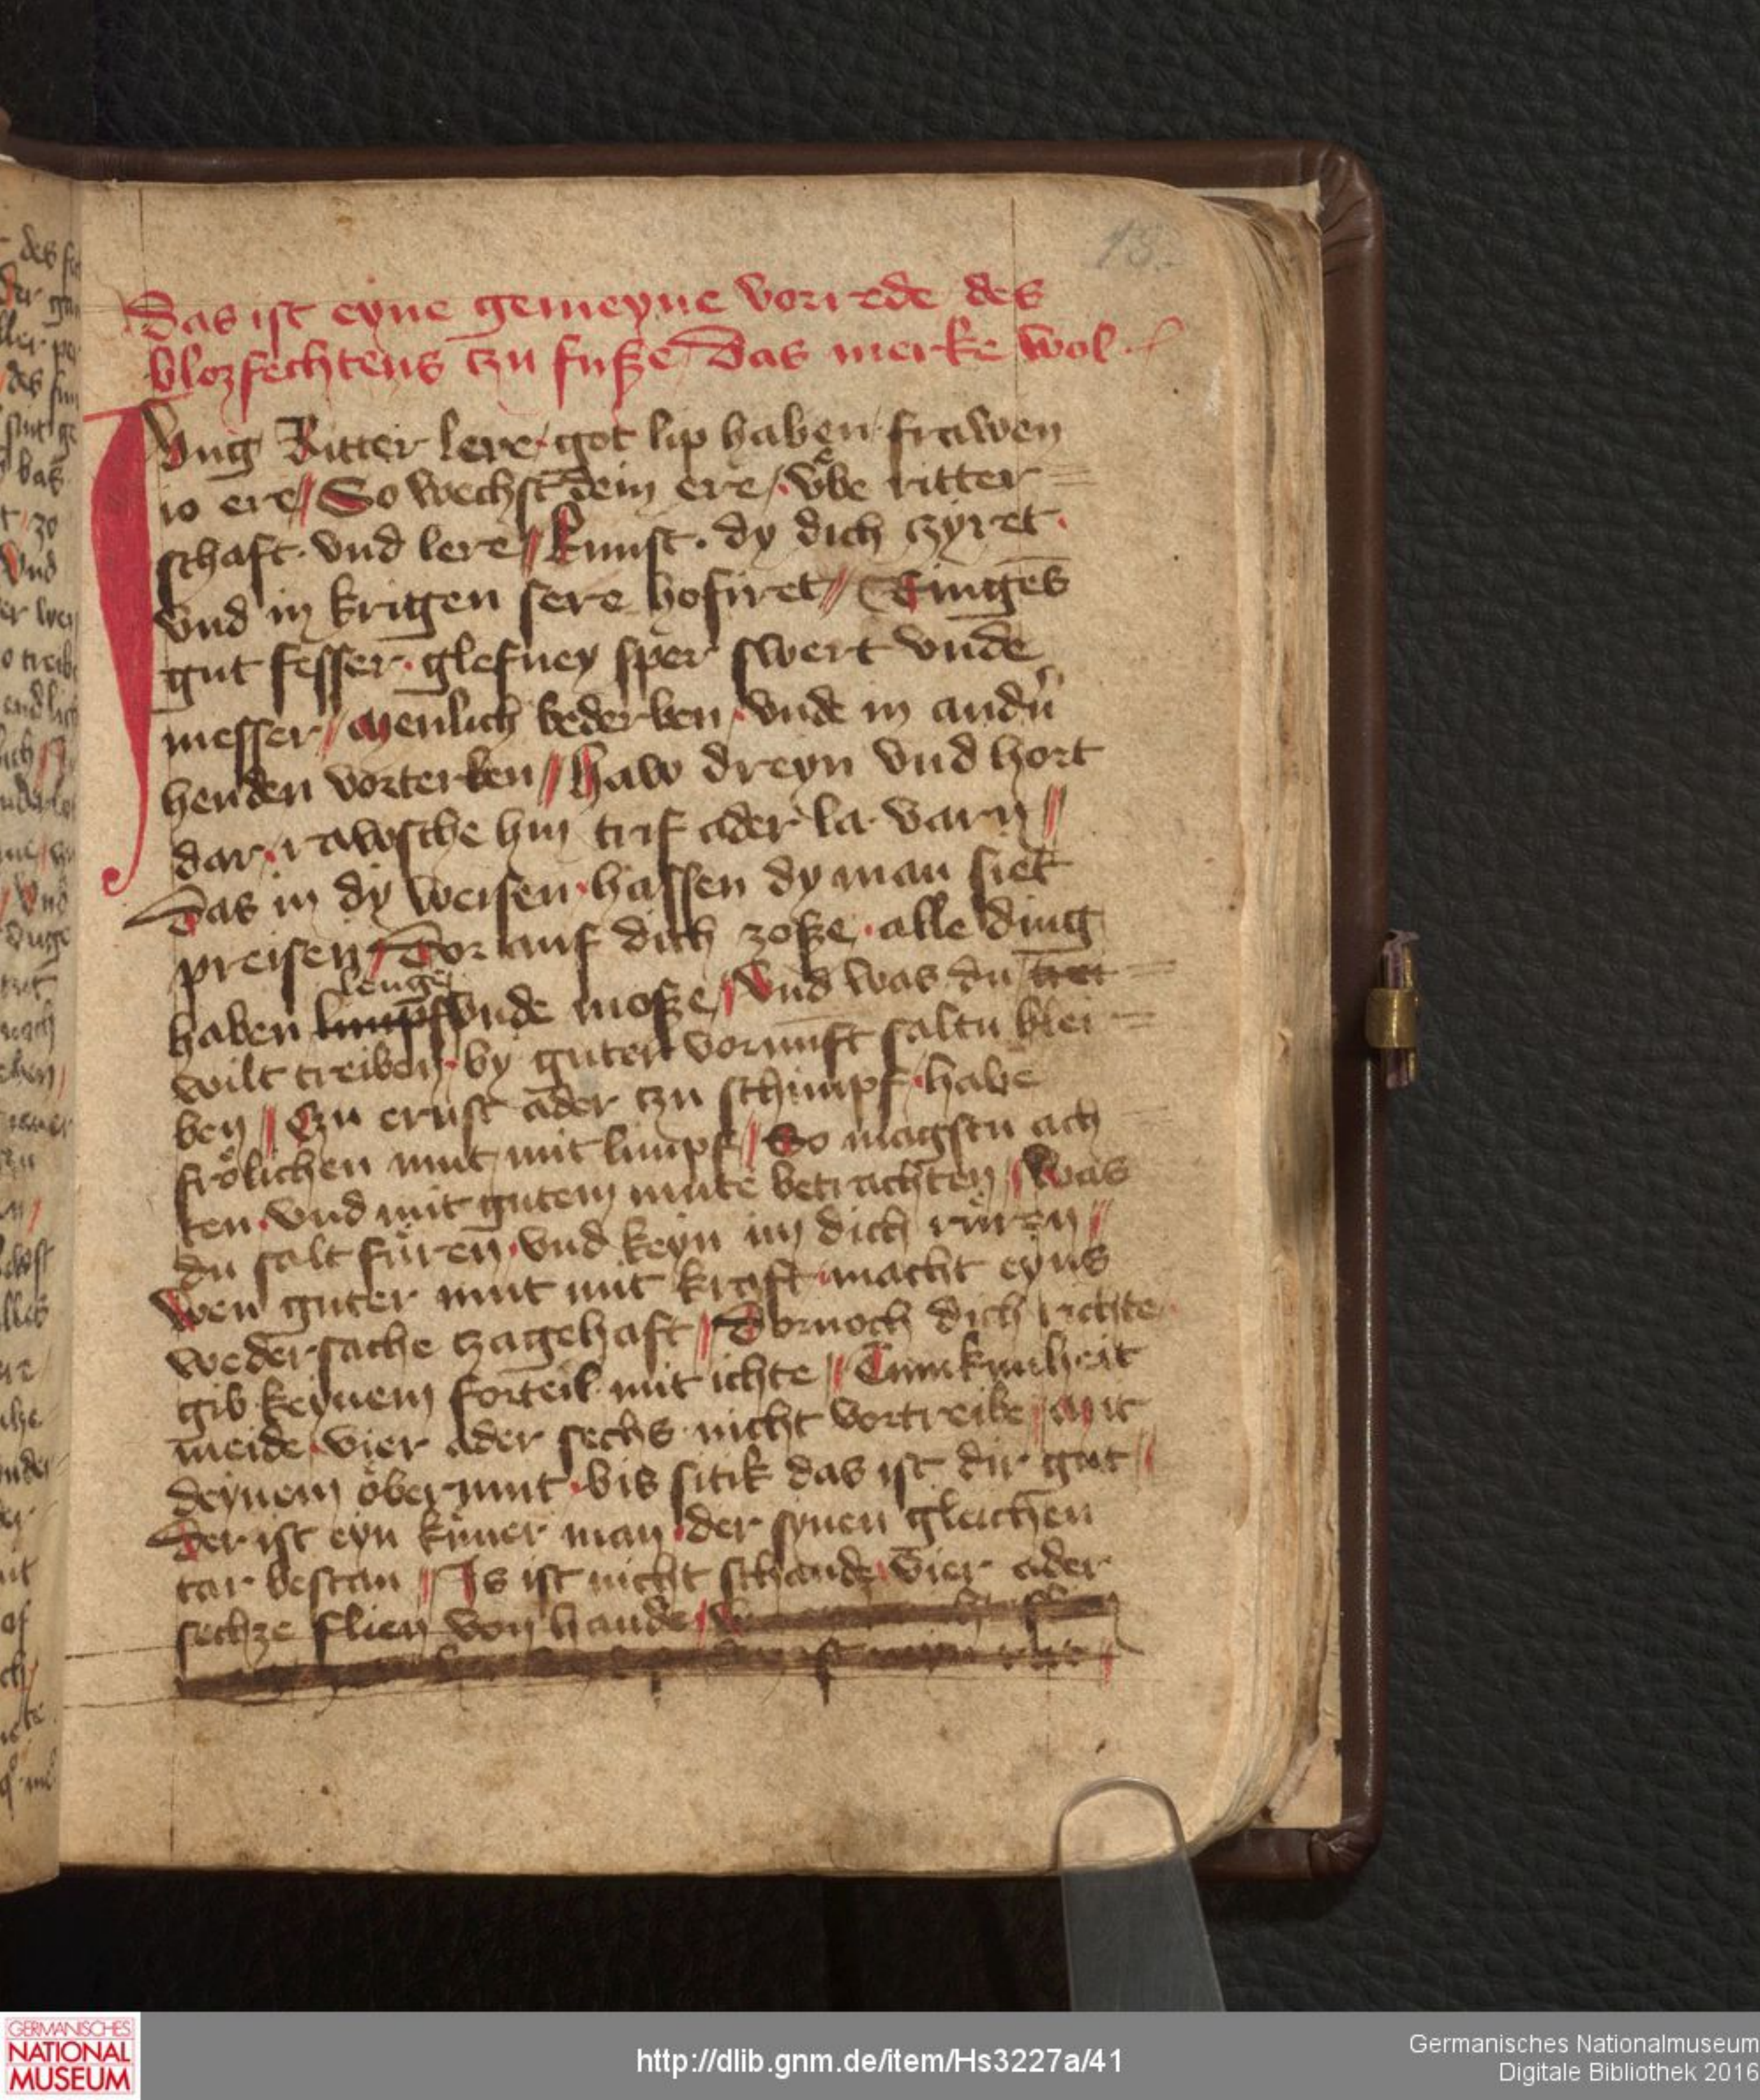 18.
Das ist eyne gemeyne vorrede des
blozfechtens czu fuße Das merke wol
Jung Ritter lere / got lip haben / frawen
io ere // So wechst dein ere / vͤbe ritter=
schaft · vnd lere // kunst · dy dich czyret ·
vnd in krigen sere hofiret // Ringes
gut fesser · glefney sper swert vnde
messer / menlich bederben / vnde in andñ
henden vorterben // Haw dreyn vnd hort
dar · rawsche hin trif ader la varn //
Das in dy weisen · hassen dy man siet
preisen / Dor auf dich zoße · alle ding
lenge
haben limpf vnde moße / Vnd was du trei=
wilt treiben · by guter vornūft saltu blei=
ben // Czu ernst ader czu schimpf · habe
frölichen mut / mit limpf // So magstu ach
ten · vnd mit gutem mute betrachten / Was
du salt füren · vnd keyn im dich rüren //
Wen guter mut mit kraft · macht eyns
wedersache czagehaft // Dornoch dich richte
gib keynem forteil mit ichte // Tumkunheit
meide / vier ader sechs nicht vortreibe / Mit
deynem öbermut · bis sitik das ist dir gut //
Der ist eyn küner man / der synen gleichen
tar bestan // Is ist nicht schande / vier ader
sechze flien von hande /
des
GERMANISCHES
NATIONAL
MUSEUM
http://dlib.gnm.de/item/Hs3227a/41
Germanisches Nationalmuseum
Digitale Bibliothek 2016